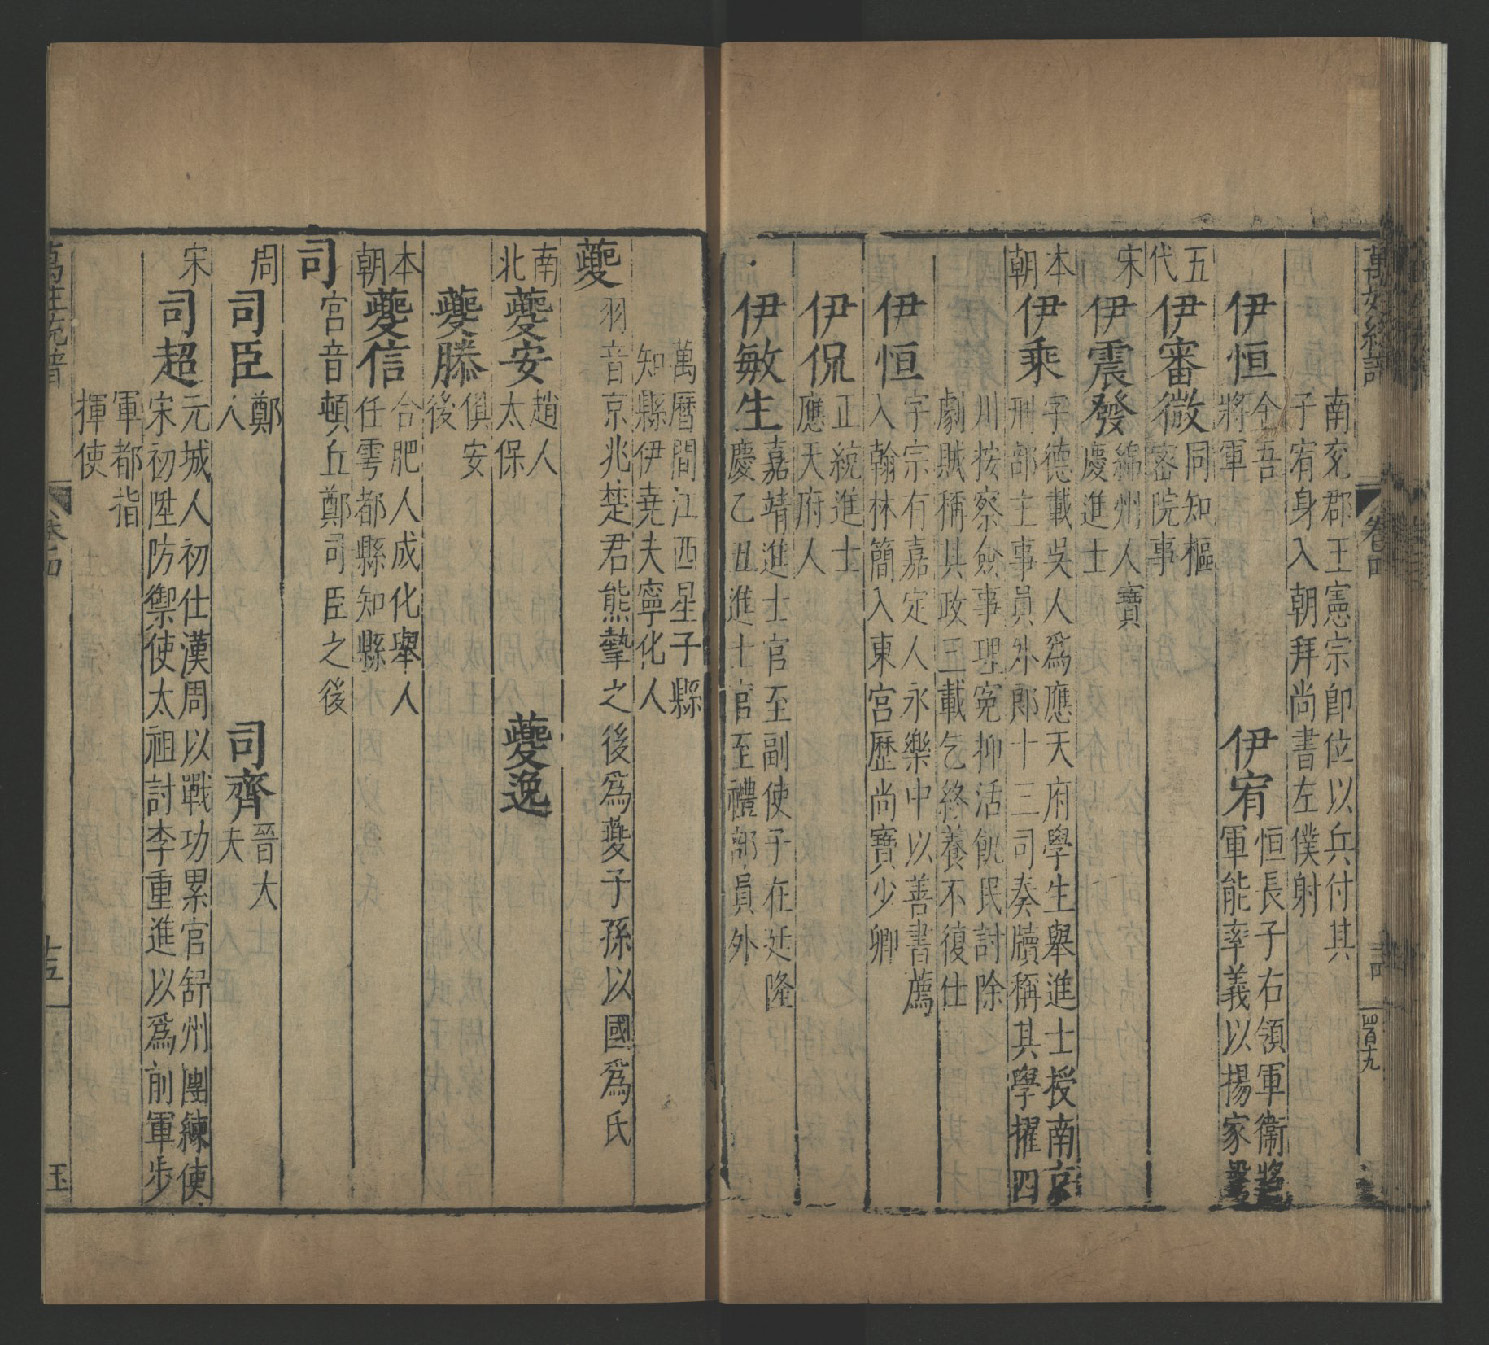 萬姓統譜
卷四
四百十九
南兗郡王憲宗卽位以兵付其
子宥身入朝拜尚書左僕射
伊恒 金吾將軍
伊宥 恒長子右領軍衞將
軍能率義以揚家
五代
伊審微 同知樞密院事
宋
伊震發 綿州人寶慶進士
本朝
伊乘 字德載吳人爲應天府學生舉進士授南京
刑部主事員外郎十三司奏牘稱其學擢四
川按察僉事理寃抑活飢民討除
劇賊稱其政三載乞終養不復仕
伊恒 字宗有嘉定人永樂中以善書薦
入翰林簡入東宮歷尚寶少卿
伊侃 正統進士
應天府人
伊敏生 嘉靖進士官至副使子在廷隆
慶乙丑進士官至禮部員外
萬曆間江西星子縣
知縣伊堯夫寧化人
夔 羽音京兆楚君熊摯之後爲夔子孫以國爲氏
南北
夔安 趙人太保
夔逸
夔滕 俱安後
本朝
夔信 合肥人成化舉人
任雩都縣知縣
司 宮音頓丘鄭司臣之後
周
司臣 鄭人
司齊 晉大夫
宋
司超 元城人初仕漢周以戰功累官舒州團練使
宋初陞防禦使太祖討李重進以爲前軍步
軍都指
揮使
萬姓統譜
卷四
十五
玉